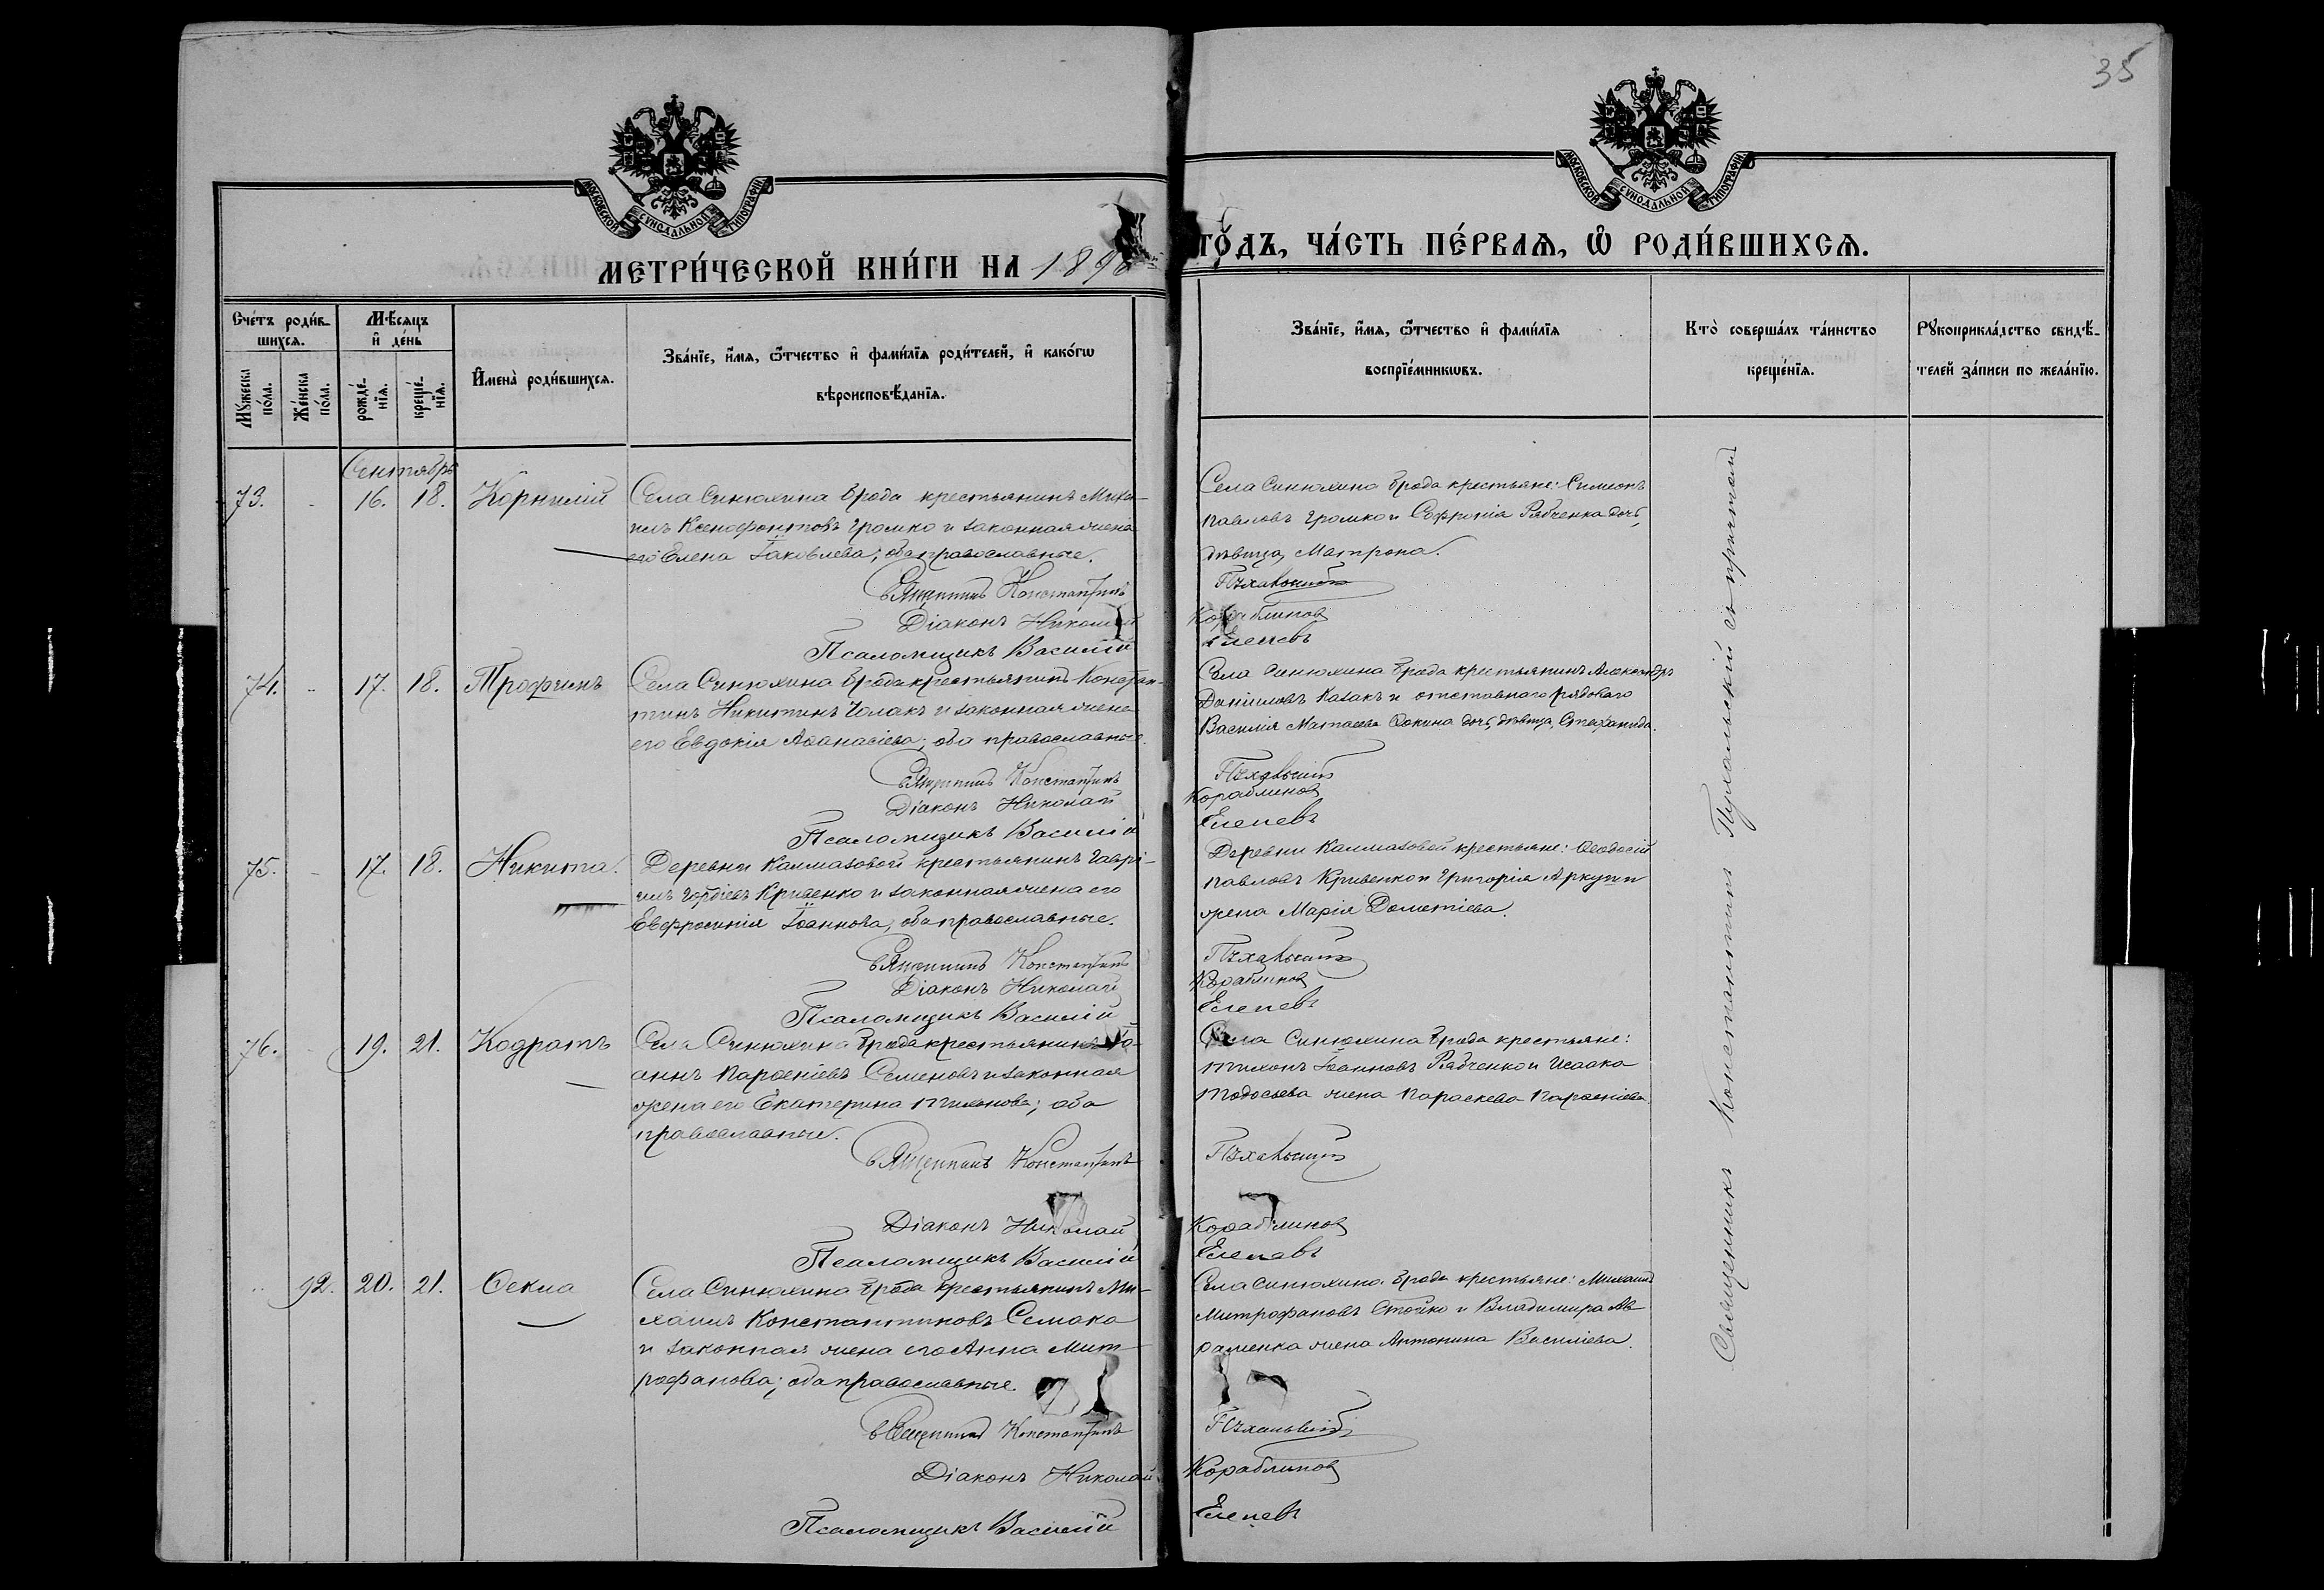 35
МОСКОВСКОЙ СУНОДАЛЬНОЙ ТИПОГРАФІИ
МОСКОВСКОЙ СУНОДАЛЬНОЙ ТИПОГРАФІИ
МЕТРИ́ЧЕСКОЙ КНИ́ГИ НА 189
ГО́ДЪ, ЧА́СТЬ ПЕ́РВАѦ, Ѡ҆ РОДИ́ВШИХСѦ.
Сче́тъ роди́в-
шихсѧ.
Мѣ́сѧцъ
и҆ де́нь
Мꙋ́жеска по́ла.
Же́нска по́ла.
рожде́-нїѧ.
креще́-нїѧ.
И҆мена̀ роди́вшихсѧ.
Зва́нїе, и҆́мѧ, ѻ҆́тчество и҆ фами́лїѧ роди́телей, и҆ како́гѡ
вѣроисповѣ́данїѧ.
Зва́нїе, и҆́мѧ, ѻ҆́тчество и҆ фами́лїѧ
воспрїе́мникѡвъ.
Кто̀ соверша́лъ та́инство
креще́нїѧ.
Рꙋкоприкла́дство свидѣ́-
телей за́писи по жела́нїю.
Сентябрь
73. 16. 18. Корнилій
Села Синюхина Брода крестьянинъ Миха-
илъ Ксенофонтовъ Громко и законная жена
его Елена Іаковлева; оба православные.
Священникъ Константинъ
Діаконъ Николай
Псаломщикъ Василій
Села Синюхина Брода крестьяне: Симеонъ
Павловъ Громко и Софронія Рябченка дочь,
дѣвица, Матрона.
Пухальскій
Кораблинов
Елепевъ
74. 17. 18. Трофимъ
Села Синюхина Брода крестьянинъ Констан-
тинъ Никитинъ Чолакъ и законная жена
его Евдокія Аѳанасіева; оба православные.
Священникъ Константинъ
Діаконъ Николай
Псаломщикъ Василій
Села Синюхина Брода крестьянинъ Александръ
Даниловъ Казакъ и отставнаго рядоваго
Василія Матѳеева Ѳокина дочь, дѣвица, Стефанида.
Пухальскій
Кораблинов
Елепевъ
75. 17. 18. Никита.
Деревни Калмазовой крестьянинъ Гаврі-
илъ Гордіевъ Кривенко и законная жена его
Евфросинія Іоаннова; оба православные.
Священникъ Константинъ
Діаконъ Николай
Псаломщикъ Василій
Деревни Калмазовой крестьяне: Ѳеодосій
Павловъ Кривенко и Григорія Аркуши
жена Марія Дометіева.
Пухальскій
Кораблинов
Елепевъ
76. 19. 21. Кодратъ
Села Синюхина Брода крестьянинъ Іо-
аннъ Парѳеніевъ Семеновъ и законная
жена его Екатерина Тихонова; оба
православные.
Священникъ Константинъ
Діаконъ Николай
Псаломщикъ Василій
Села Синюхина Брода крестьяне:
Тихонъ Іоанновъ Рябченко и Исаака
Тодосьева жена Параскева Парѳеніева.
Пухальскій
Кораблинов
Елепевъ
92. 20. 21. Ѳекла
Села Синюхина Брода крестьянинъ Ми-
хаилъ Константиновъ Семака
и законная жена его Анна Мит-
рофанова; оба православные.
Священникъ Константинъ
Діаконъ Николай
Псаломщикъ Василій
Села Синюхина Брода крестьяне: Михаилъ
Митрофановъ Стойко и Владимира Ав-
раменка жена Антонина Василіева.
Пухальскій
Кораблинов
Елепевъ
Священникъ Константинъ Пухальскій съ причтомъ